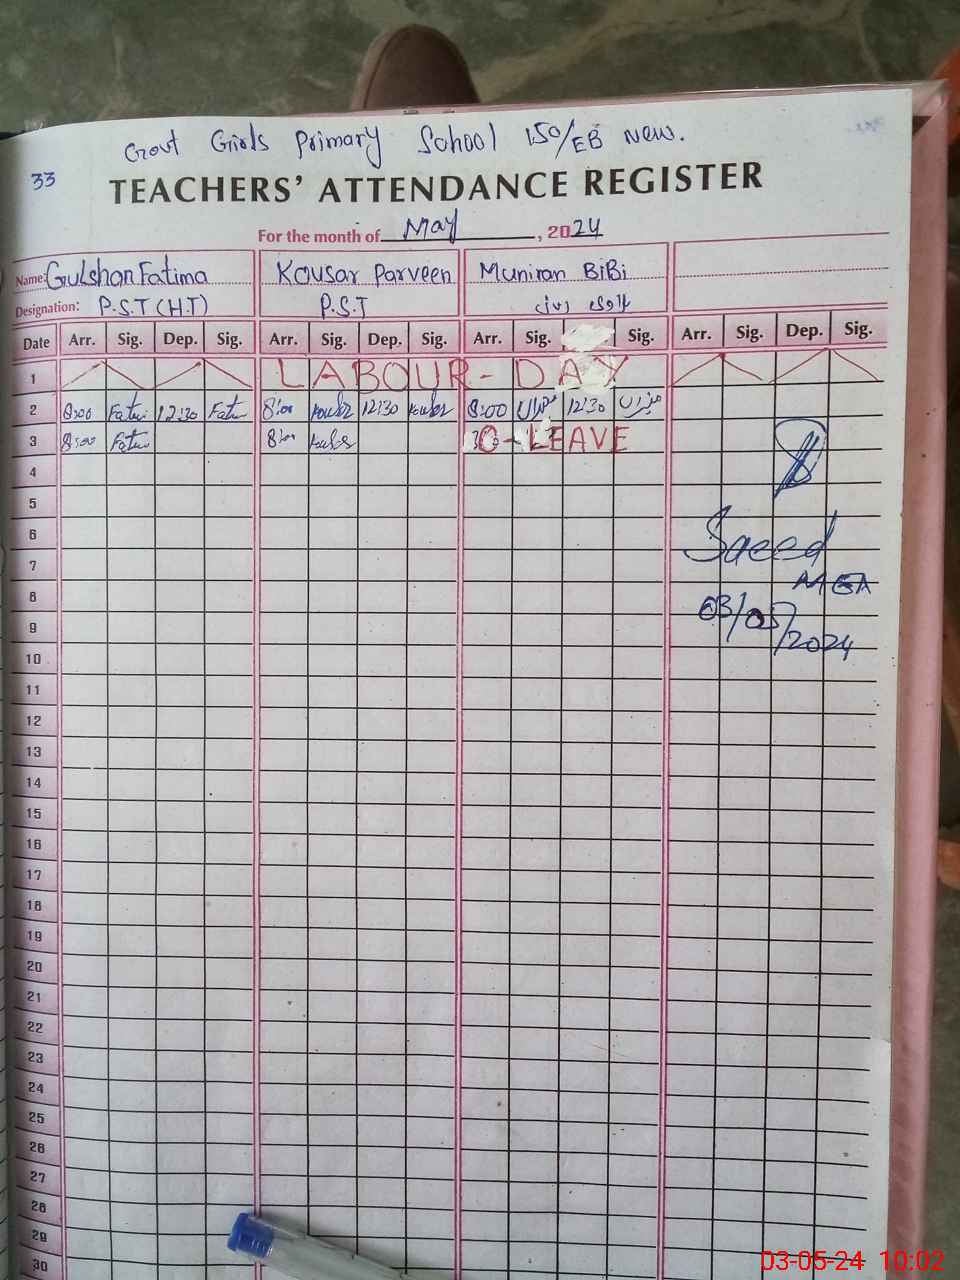 Govt Girls Primary School 150/EB New.
33
TEACHERS' ATTENDANCE REGISTER
For the month of May, 2024
Name: Gulshan Fatima Kousar Parveen Muniran BiBi
Designation: P.S.T (H.T) P.S.T
Date Arr. Sig. Dep. Sig. Arr. Sig. Dep. Sig. Arr. Sig. Sig. Arr. Sig. Dep. Sig.
1 LABOUR - DAY
2 8:00 Fatim 12:30 Fatim 8:00 Kousar 12:30 Kousar 8:00 منیراں 12:30 منیراں
3 8:00 Fatim 8:00 Kousar O - LEAVE
4
5
6
7
8
9
10
11
12
13
14
15
16
17
18
19
20
21
22
23
24
25
26
27
28
29
30
Saeed
MEA
03/05/2024
03-05-24 10:02